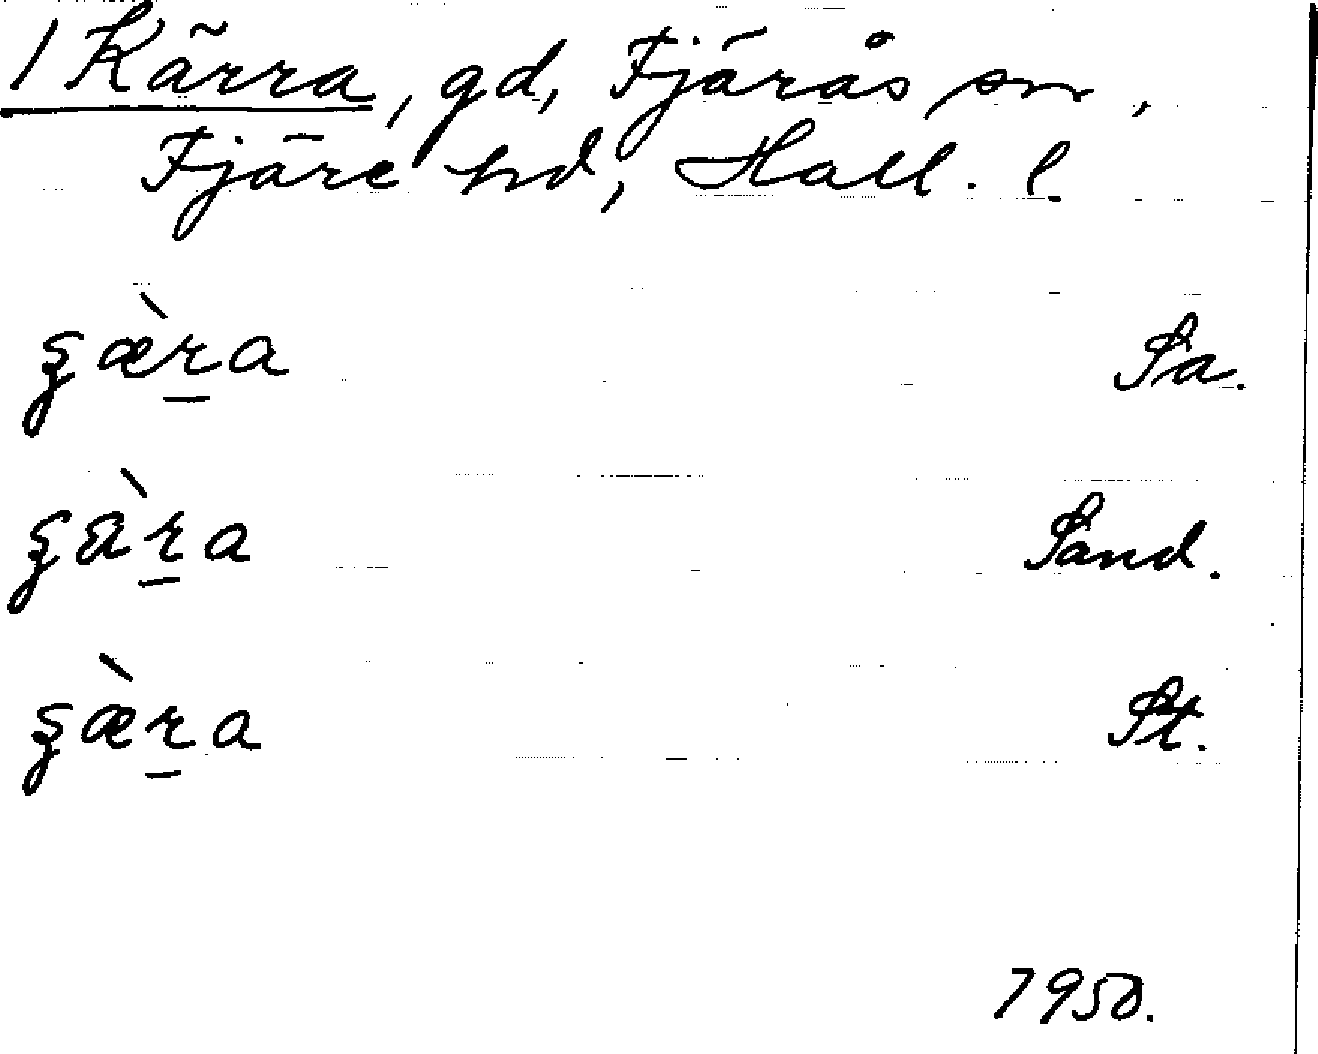 1 Kärra, gd, Fjärås sn,
Fjäre hd, Hall. l.
ʂæ̀r̲a Sa.
ʂàr̲a Sand.
ʂæ̀r̲a St.
1950.